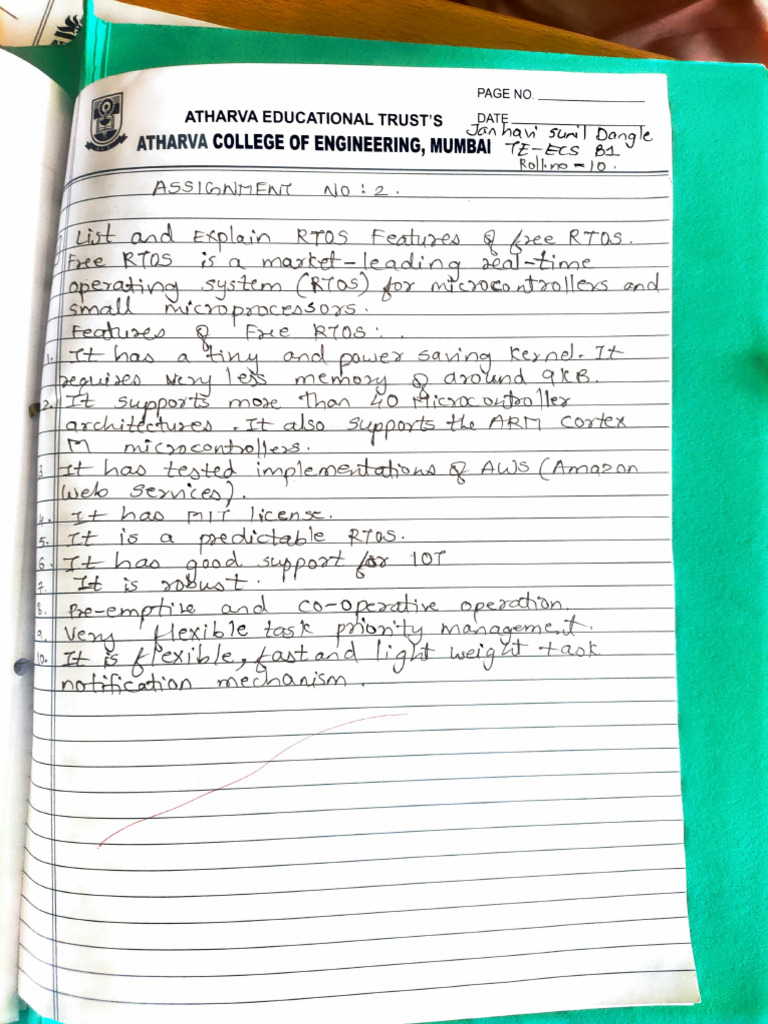 PAGE NO.
ATHARVA EDUCATIONAL TRUST'S
DATE
ATHARVA COLLEGE OF ENGINEERING, MUMBAI
Janhavi Sunil Dangle
TE-ECS B1
Roll.no - 10.
ASSIGNMENT NO : 2.
List and Explain RTOS Features of free RTOS.
Free RTOS is a market-leading real-time
operating system (RTOS) for microcontrollers and
small microprocessors.
Features of Free RTOS:.
1. It has a tiny and power saving kernel. It
requires very less memory of around 9KB.
2. It supports more than 40 Microcontroller
architectures. It also supports the ARM Cortex
M microcontrollers.
3. It has tested implementations of AWS (Amazon
Web Services).
4. It has MIT license.
5. It is a predictable RTOS.
6. It has good support for IOT
7. It is robust.
8. Pre-emptive and co-operative operation.
9. Very flexible task priority management.
10. It is flexible, fast and light weight task
notification mechanism.